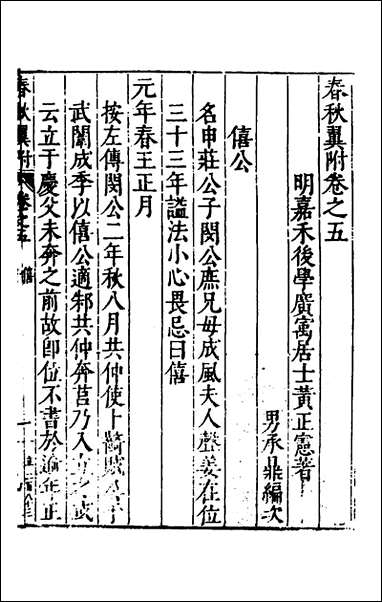 春秋翼附卷之五
明嘉禾後學廣寓居士黃正憲著
男承鼎編次
僖公
名申莊公子閔公庶兄母成風夫人聲姜在位
三十三年謚法小心畏忌曰僖
元年春王正月
按左傳閔公二年秋八月共仲使卜齮賊公于
武闈成季以僖公適邾共仲奔莒乃入
云立于慶父未奔之前故即位不書於逾年正
春秋翼附卷之五 僖